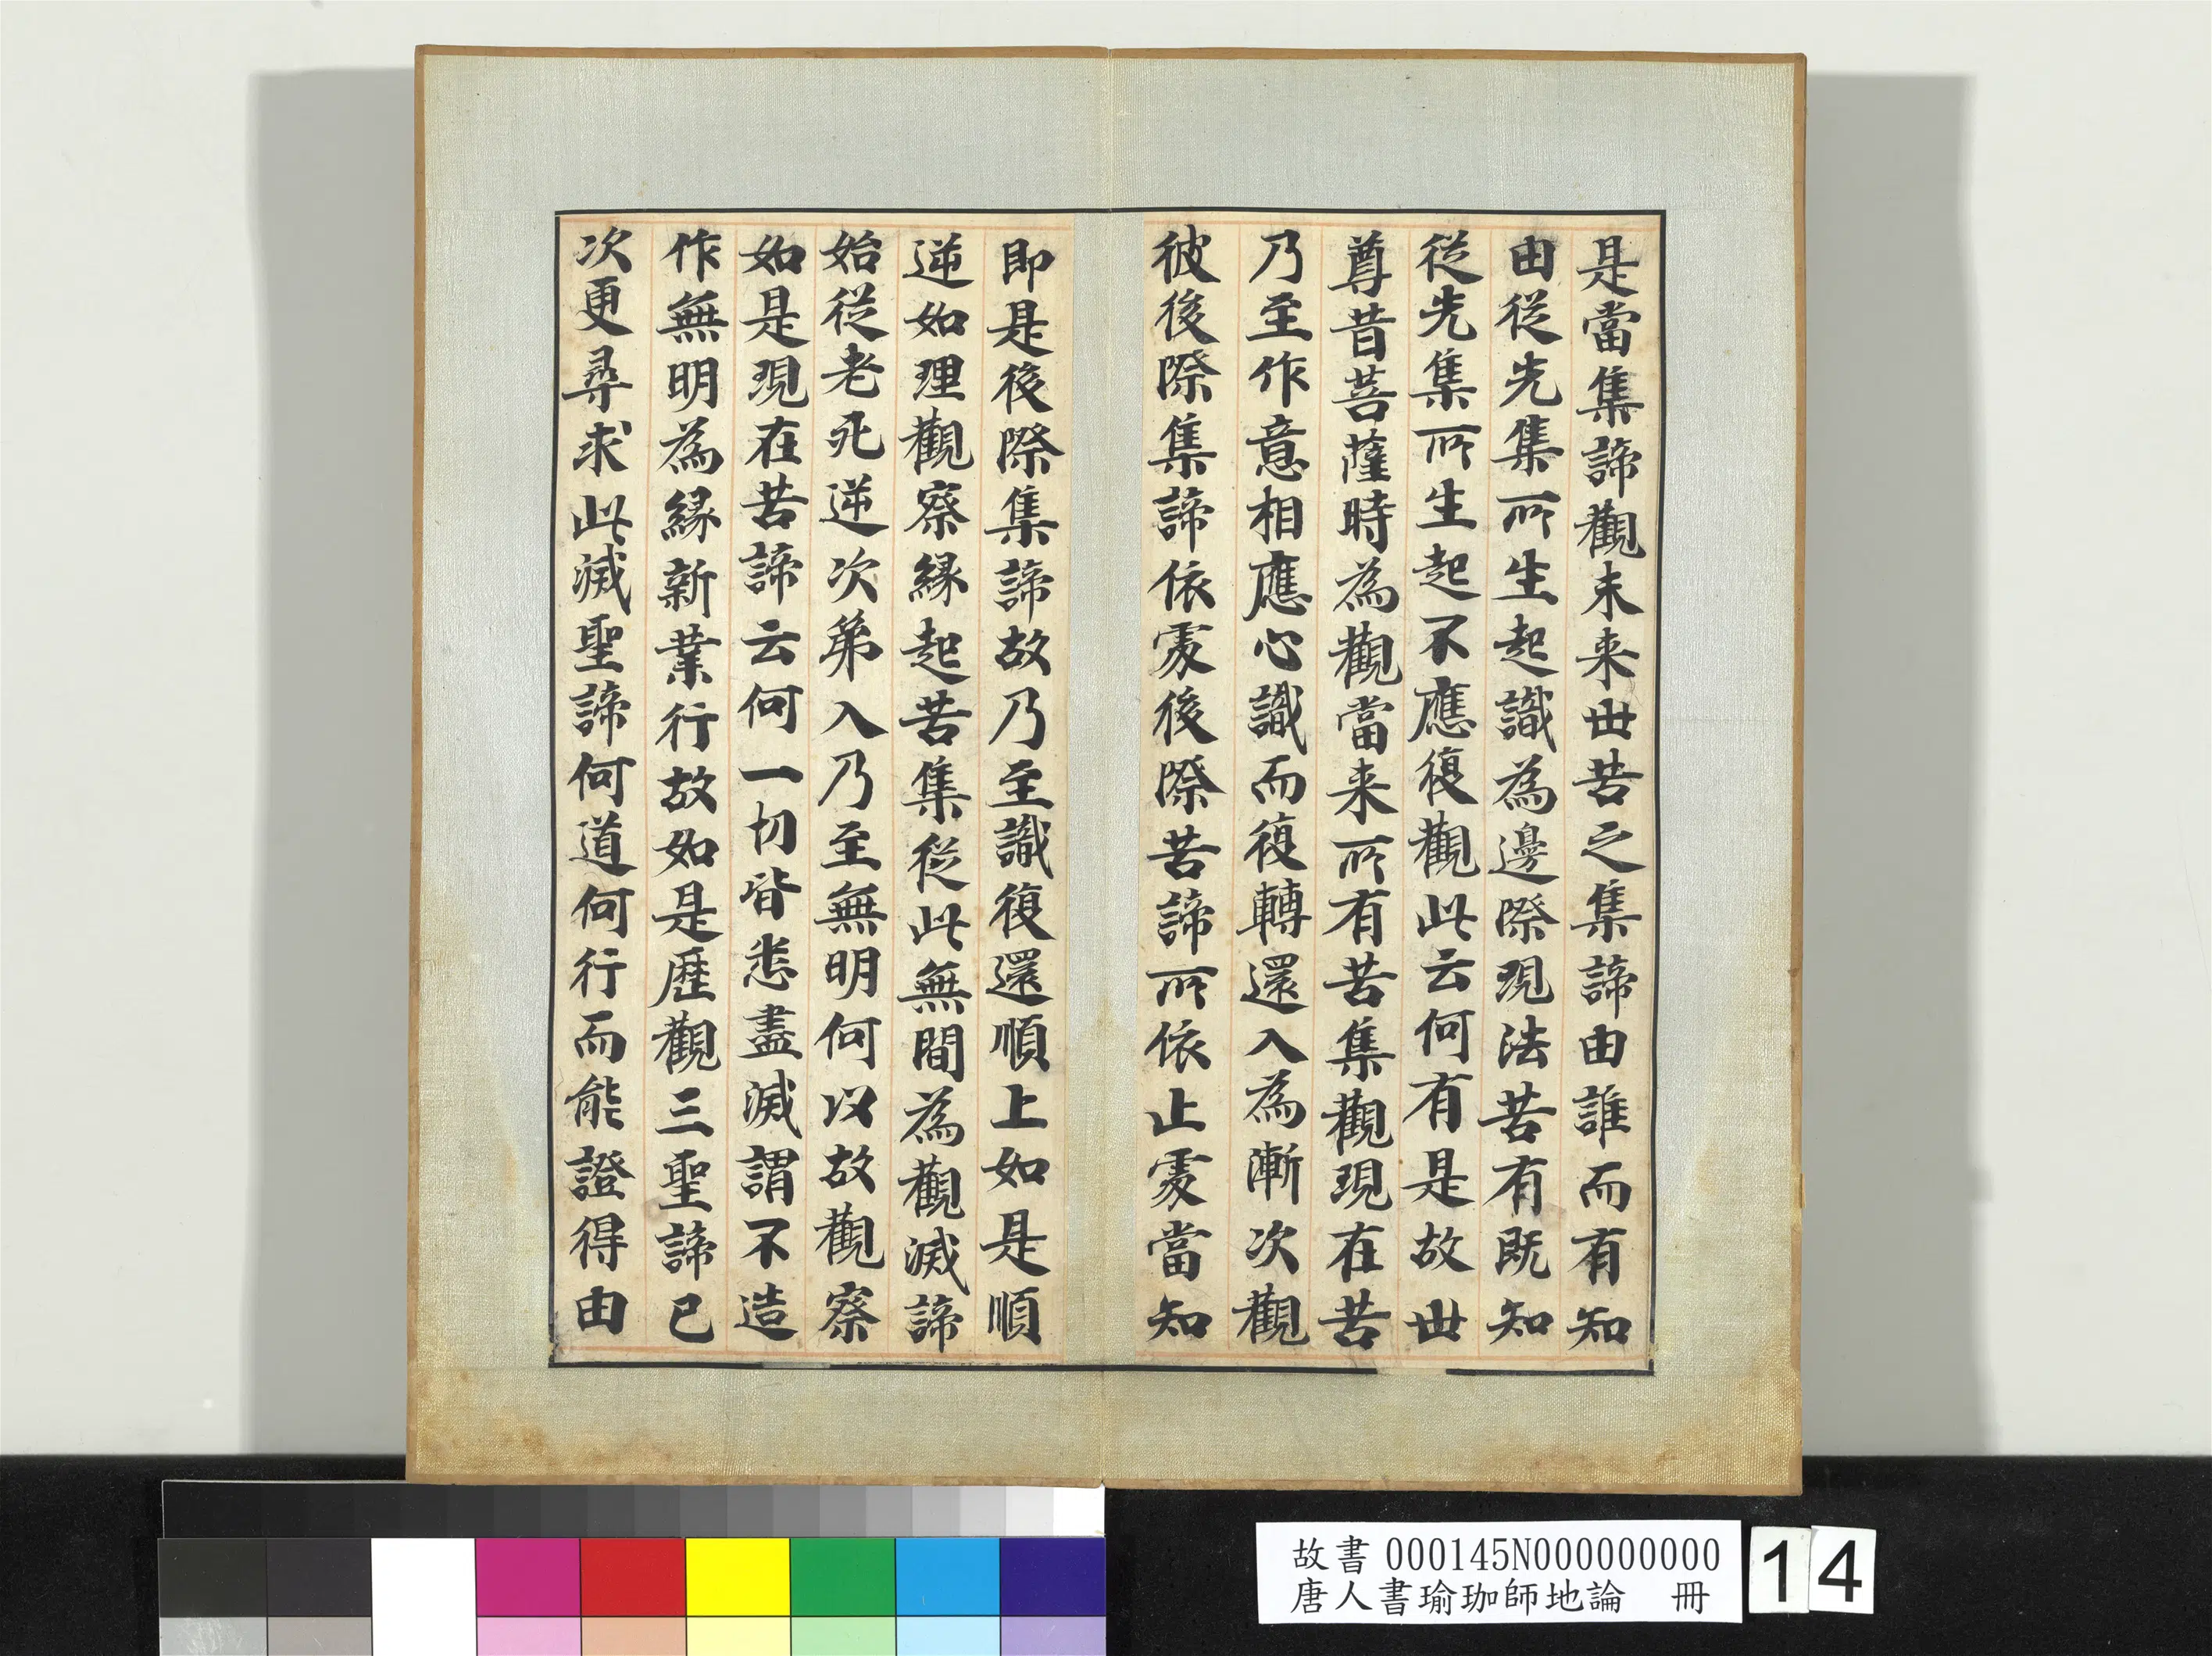 是當集諦觀未来世苦之集諦由誰而有知
由從先集所生起識為邊際現法苦有既知
從先集所生起不應復觀此云何有是故世
尊昔菩薩時為觀當来所有苦集觀現在苦
乃至作意相應心識而復轉還入為漸次觀
彼後際集諦依處後際苦諦所依止處當知
即是後際集諦故乃至識復還順上如是順
逆如理觀察緣起苦集從此無間為觀滅諦
始從老死逆次第入乃至無明何以故觀察
如是現在苦諦云何一切皆悉盡滅謂不造
作無明為緣新業行故如是歷觀三聖諦已
次更尋求此滅聖諦何道何行而能證得由
故書 000145N000000000
唐人書瑜珈師地論 冊
14